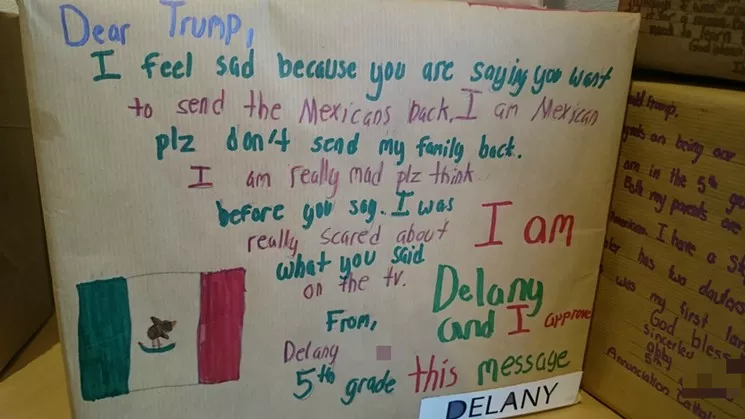 Dear Trump,
I feel sad because you are saying you want
to send the Mexicans back. I am Mexican
plz don't send my family back.
I am really mad plz think
before you say. I was
really scared about
what you said
on the tv.
From,
Delany
5th grade
I am
Delany
and I approve
this message
DELANY
on being our
am in the 5th
Both my parents are
I have a
has two
was my first
God bless